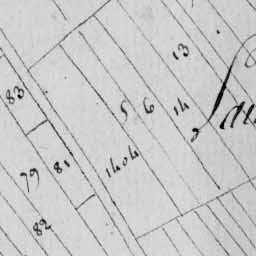 13
83
5
6
14
1404
79
81
82